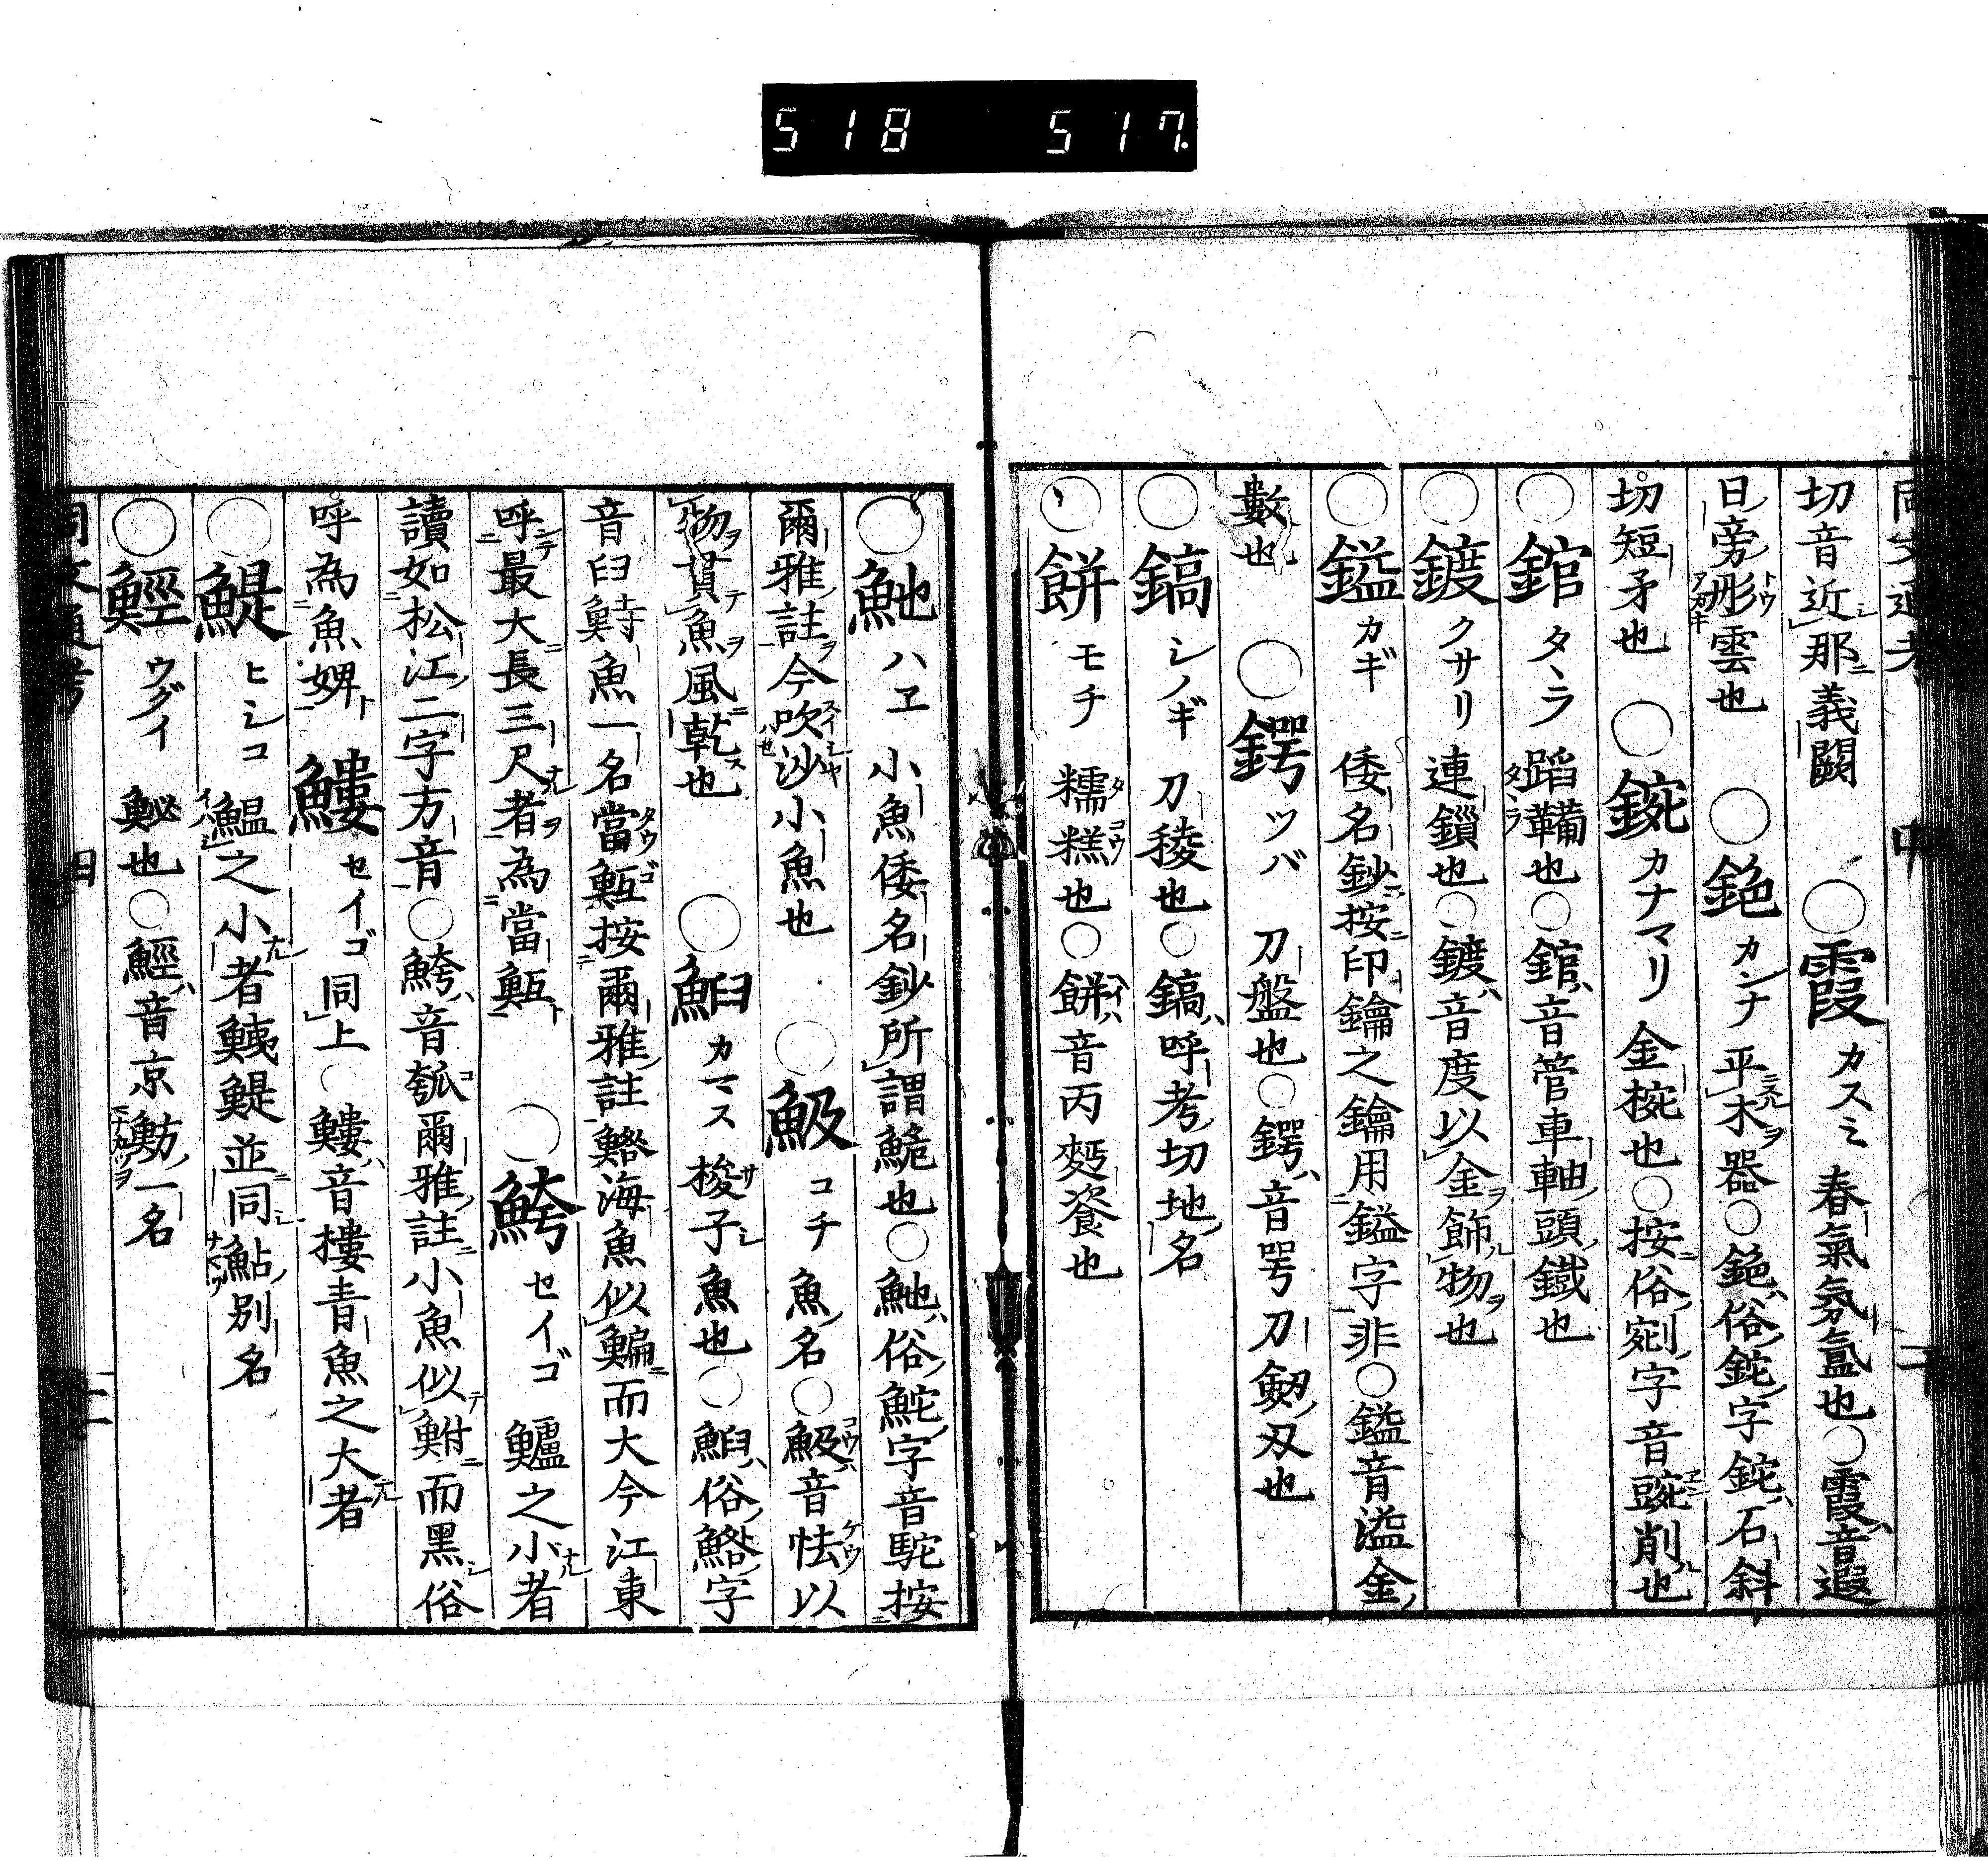 518 517
切音近那義闕 ○霞カスミ 春氣氛氳也○霞音遐
日旁彤雲也 ○鉋カンナ 平木器○鉋俗鉈字鉈石斜
切短矛也 ○鋺カナマリ 金椀也○按俗剜字音豌削也
○錧タヽラ 蹈鞴也○錧音管車軸頭鐵也
○鍍クサリ 連鎖也○鍍音度以金飾物也
○鎰カギ 倭名鈔按印鑰之鑰用鎰字非○鎰音溢金
數也 ○鍔ツバ 刀盤也○鍔音咢刀劔刄也
○鎬シノギ 刀稜也○鎬呼考切地名
○餅モチ 糯糕也○餅音丙麪餈也
○䱉ハヱ 小魚倭名鈔所謂鮠也○䱉俗鮀字音駝按
爾雅註今吹沙小魚也 ○魥コチ 魚名○魥音怯以
物貫魚風乾也 ○䱔カマス 梭子魚也○䱔俗鰌字
音臼鰣魚一名當魱按爾雅註鰣海魚似鯿而大今江東
呼最大長三尺者為當魱 ○鮬セイゴ 鱸之小者
讀如松江二字方音○鮬音瓠爾雅註小魚似鮒而黑俗
呼為魚婢 鱰セイゴ同上○鱰音樓青魚之大者
○鯷ヒシコ 鰮之小者鮧鯷並同鮎別名
○鯨ウグイ 䱐也○鯨音京魴一名